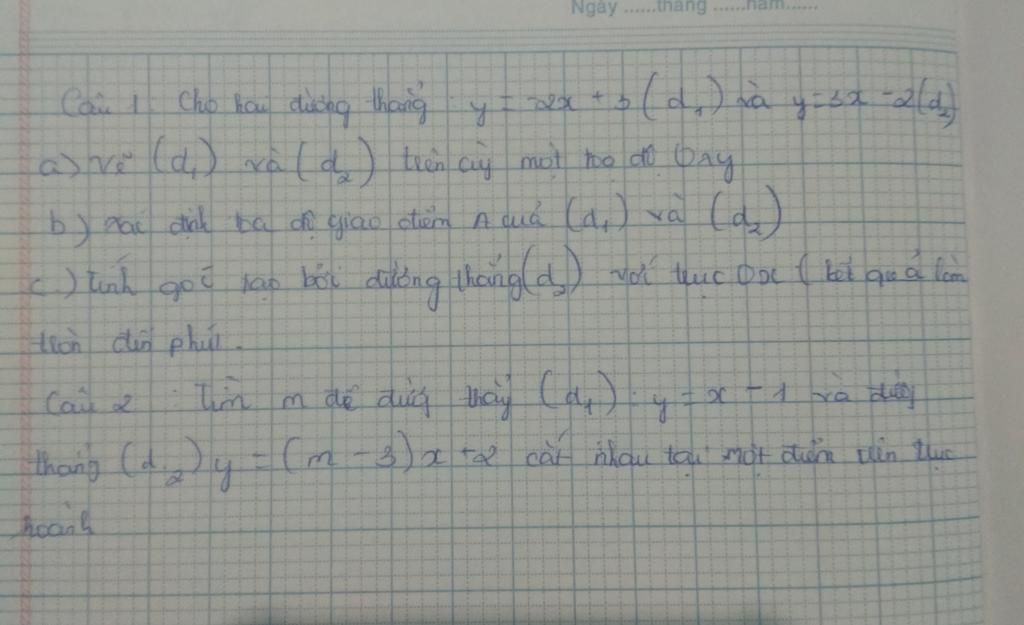 Ngày ......tháng ......năm......
Câu 1: Cho hai đường thẳng : y = -2x + 3 (d₁) và y=3x -2(d₂)
a) vẽ (d₁) và (d₂) trên cùng một toạ độ Oxy
b) xác định toạ độ giao điểm A của (d₁) và (d₂)
c) Tính góc tạo bởi đường thẳng (d₂) với trục Ox ( kết quả làm
tròn đến phút.
Câu 2 : Tìm m để đường thẳng (d₁) : y = x - 1 và đường
thẳng (d₂) y = (m - 3)x +2 cắt nhau tại một điểm trên trục
hoành